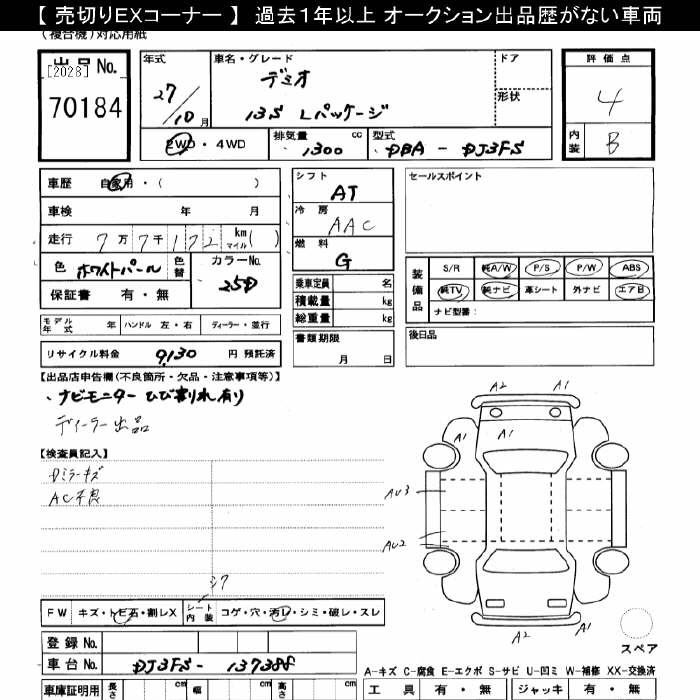 【 売切りEXコーナー 】 過去１年以上 オークション出品歴がない車両
(複合機)対応用紙
出品 No. [2028]
70184
年式 27/10月
車名・グレード デミオ
13S Lパッケージ
ドア
形状
評価点
4
内装 B
2WD ・ 4WD
排気量 1300 cc
型式 DBA - DJ3FS
車歴 自家用 ・( )
車検 年 月
走行 7万7千172 km マイル ( )
色 ホワイトパール 色替 カラーNo. 25D
保証書 有 ・ 無
シフト AT
冷房 AAC
燃料 G
乗車定員 名
積載量 kg
総重量 kg
書類期限
月 日
セールスポイント
装備品
S/R 純A/W P/S P/W ABS
純TV 純ナビ 革シート 外ナビ エアB
ナビ型番:
後日品
モデル年式 年 ハンドル 左・右 ディーラー・並行
リサイクル料金 9,130 円 預託済
【出品店申告欄(不良箇所・欠品・注意事項等)】
、ナビモニター ひび割れ有り
ディーラー出品
【検査員記入】
Dミラーキズ
AC不良
シワ
FW キズ・トビ石・割レX シート内装 コゲ・穴・汚レ・シミ・破レ・スレ
登録 No.
車台 No. DJ3FS - 137388
車庫証明用 長さ cm 幅 cm 高さ cm
A2 A1
A1 A1
AU3
AU2
A2 A1
スペア
A-キズ C-腐食 E-エクボ S-サビ U-凹ミ W-補修 XX-交換済
工具 有 ・ 無 ジャッキ 有 ・ 無